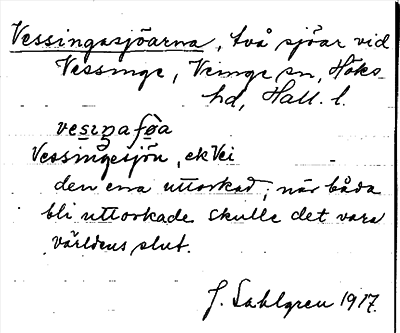 Vessingasjöarna, två sjöar vid
Vessinge, Veinge sn, Höks
hd, Hall. l.
Vessingesjön, ek Vei
den ena uttorkad; när båda
bli uttorkade skulle det vara
världens slut.
J. Sahlgren 1917.